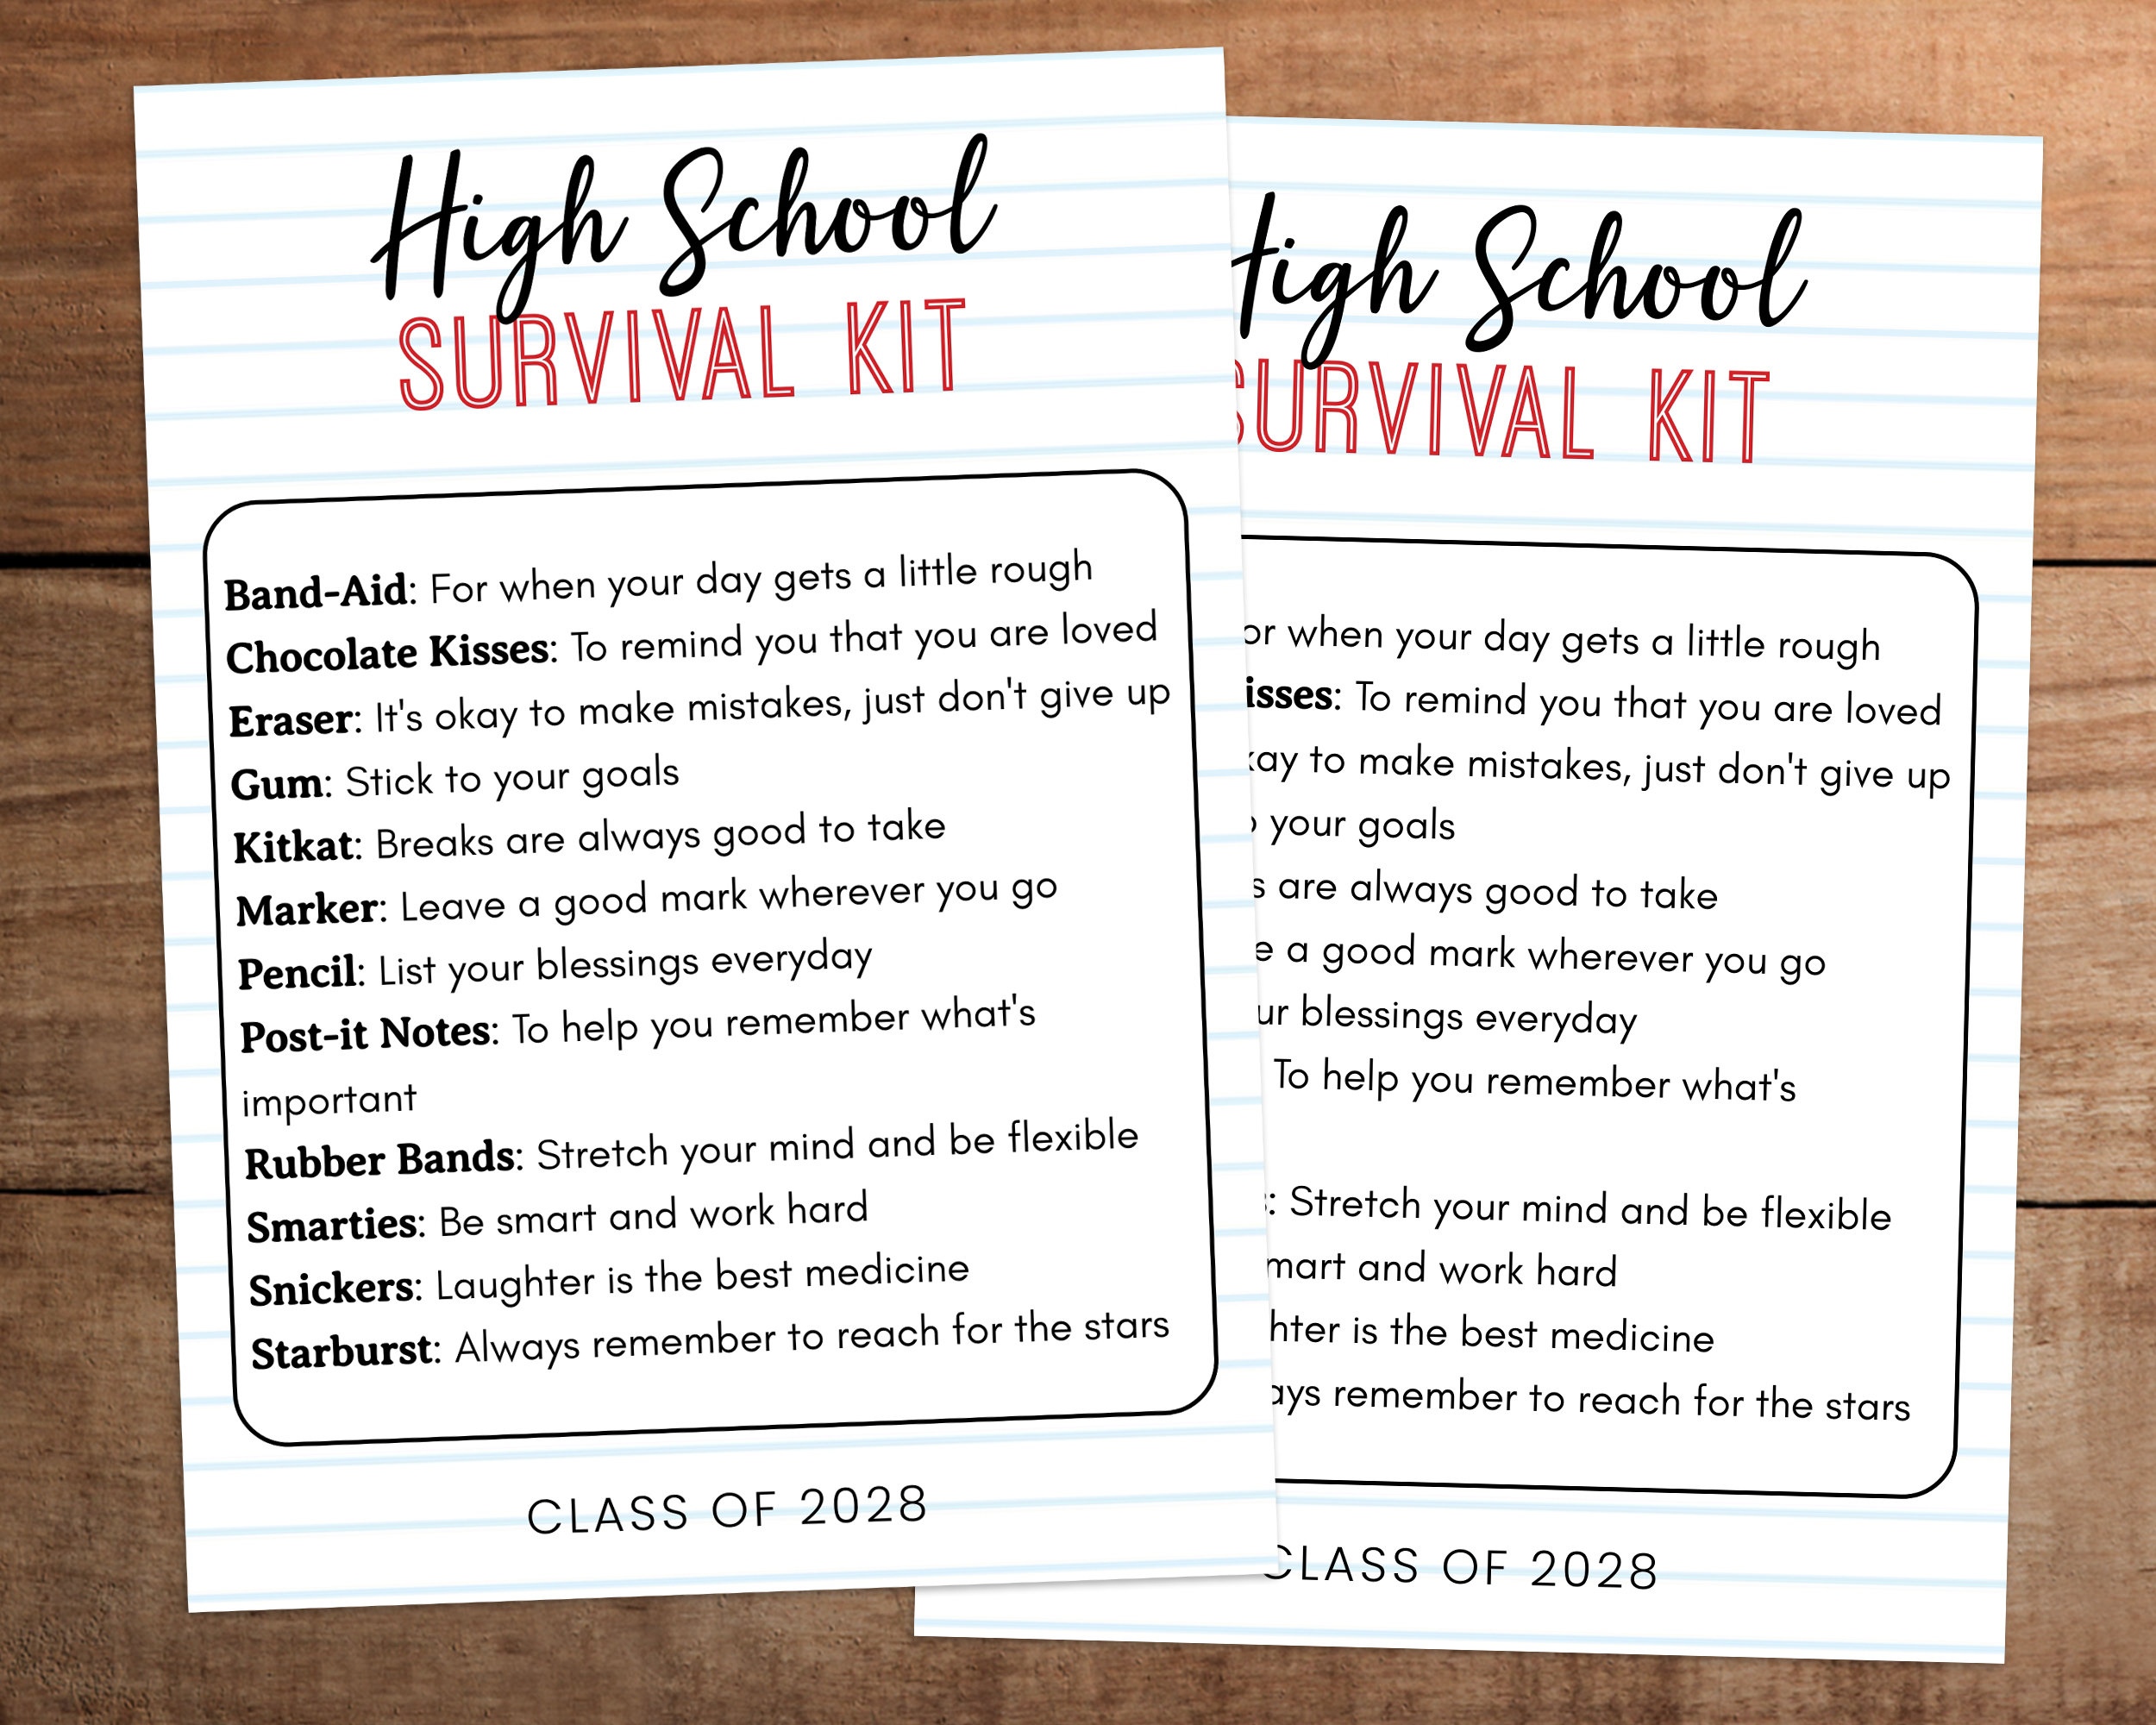 High School
SURVIVAL KIT
Band-Aid: For when your day gets a little rough
Chocolate Kisses: To remind you that you are loved
Eraser: It's okay to make mistakes, just don't give up
Gum: Stick to your goals
Kitkat: Breaks are always good to take
Marker: Leave a good mark wherever you go
Pencil: List your blessings everyday
Post-it Notes: To help you remember what's
important
Rubber Bands: Stretch your mind and be flexible
Smarties: Be smart and work hard
Snickers: Laughter is the best medicine
Starburst: Always remember to reach for the stars
CLASS OF 2028
High School
SURVIVAL KIT
or when your day gets a little rough
isses: To remind you that you are loved
kay to make mistakes, just don't give up
your goals
s are always good to take
e a good mark wherever you go
ur blessings everyday
To help you remember what's
: Stretch your mind and be flexible
mart and work hard
hter is the best medicine
ays remember to reach for the stars
CLASS OF 2028